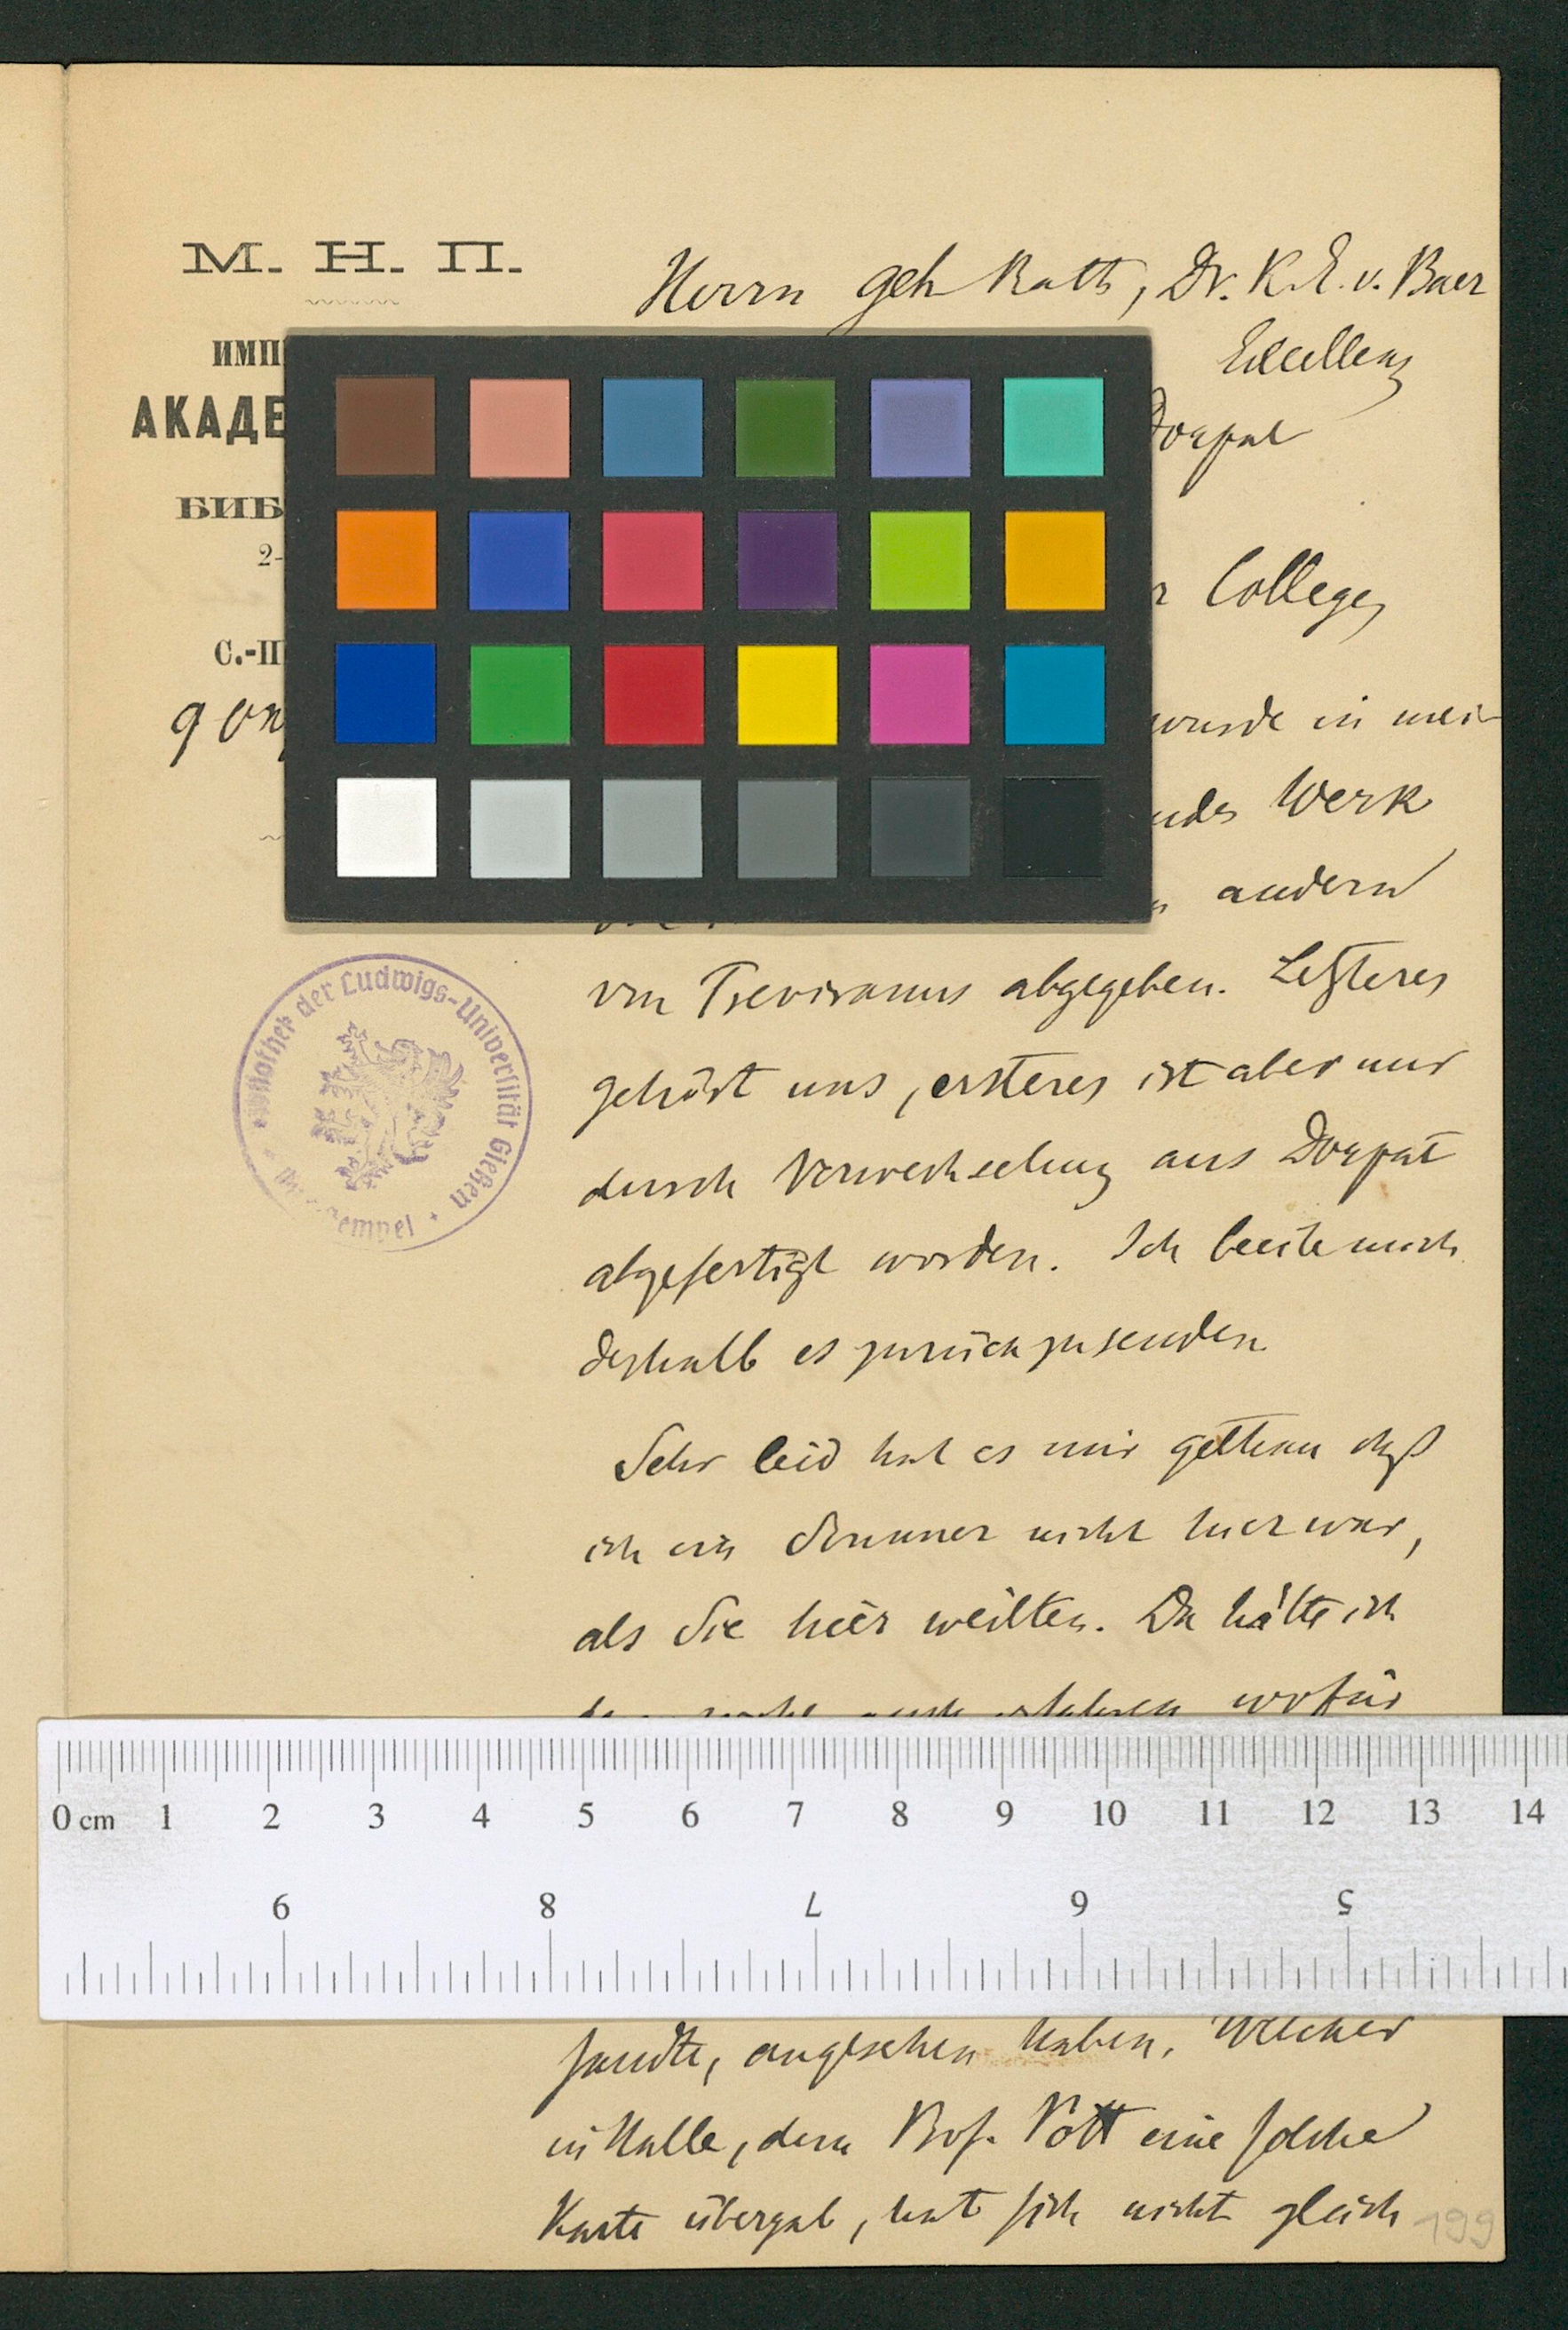 М. Н. П.
ИМП
АКАДЕ
БИБ
2-
С.-П
9
Herrn geh Rath, Dr. K. E. v. Baer
Excellenz
Dorpat
College,
wurde in mei-
Werk
andern
von Treviranus abgegeben. Letzteres
gehört uns, ersteres ist aber nur
durch Verwechselung aus Dorpat
abgefertigt worden. Ich beeile mich
deshalb es zurückzusenden
Sehr leid hat es mir gethan daß
ich im Sommer nicht hier war,
als Sie hier weilten. Da hätte ich
erfahren wofür
sandte, angesehen haben. Welcher
in Halle, dem Prof. Pott eine solche
Karte übergab, hat sich nicht gleich
199
Bibliothek der Ludwigs-Universität Gießen
0 cm 1 2 3 4 5 6 7 8 9 10 11 12 13 14
9 8 7 6 5